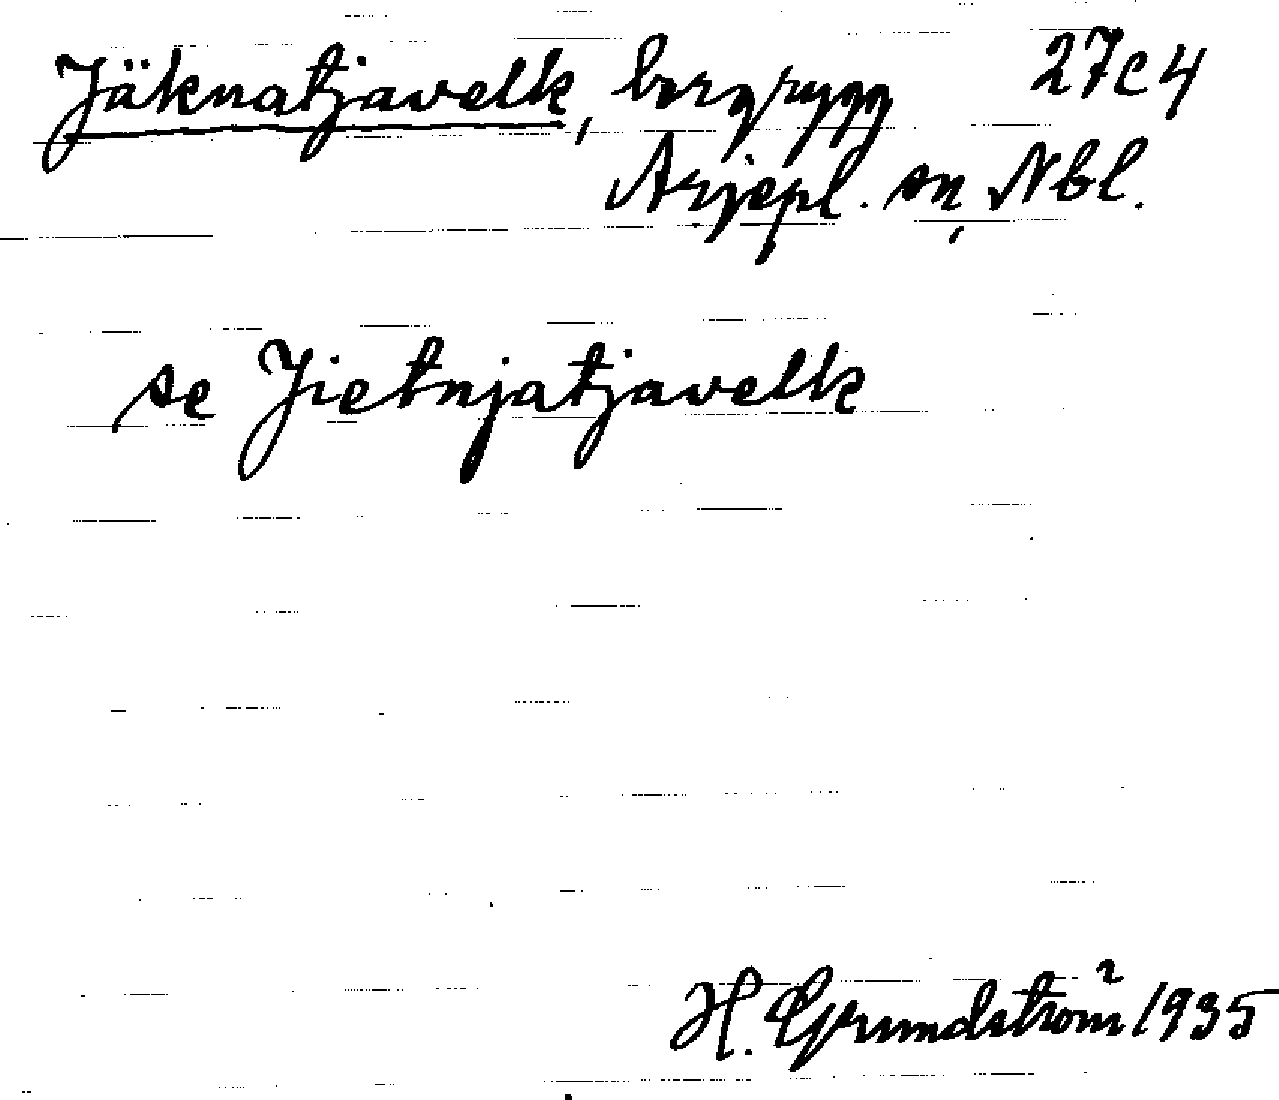 Jäknatjavelk, bergrygg 27c4
Arjepl. sn, Nbl.
se Jietnjatjavelk
H. Grundström 1935